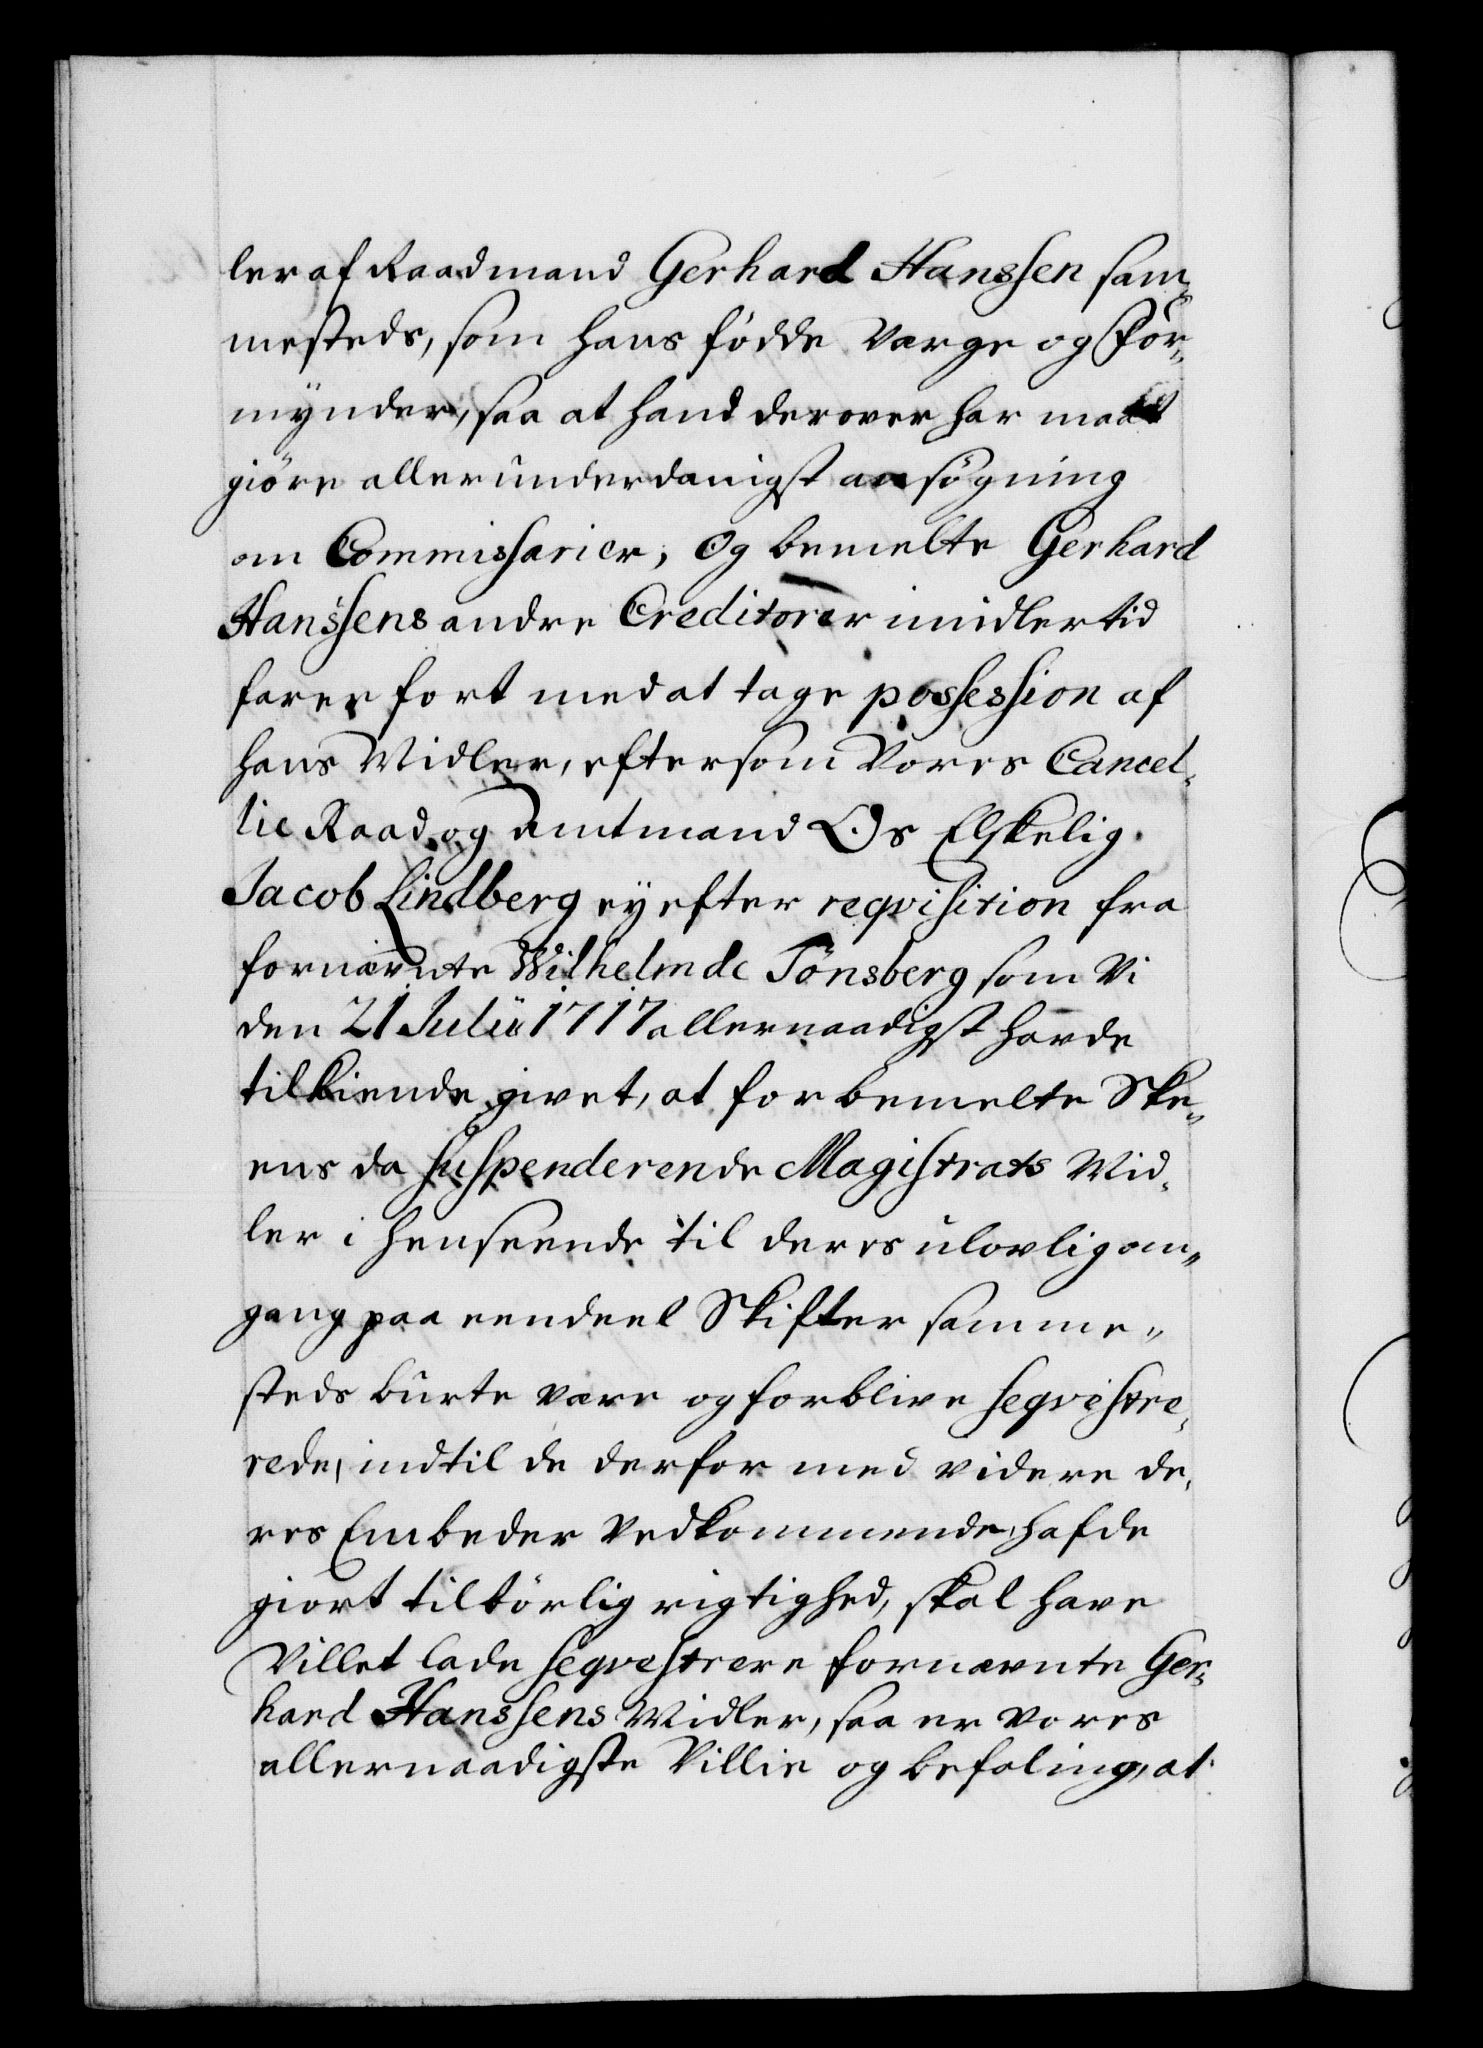 ler af Raadmand Gerhard Hanssen sam¬
mesteds, som hans fødde Værge og For¬
mynder, saa at hand derover har maat
giöre allerunderdanigst ansögning
om Commissarier, Og bemelte Gerhard
Hanssens andre Creditorer imidlertid
farer fort med at tage possession af
hans Midler, eftersom Vores Cancel¬
lie Raad og Amtmand Os Elskelig
Jacob Lindberg ey efter reqvisition fra
fornævnte Wilhelm de Tönsberg som Vi
den 21 Julii 1717 allernaadigst havde
tilkiende givet, at forbemelte Ske¬
ens da suspenderende Magistrats Mid¬
ler i henseende til deres ulovlig om¬
gang paa eendeel Skifter samme¬
steds burte være og forblive seqvestre¬
rede, indtil de derfor med videre de¬
res Embeder vedkommende, hafde
giort tilbörlig rigtighed, skal have
Villet lade seqvestrere fornævnte Ger¬
hard Hanssens Midler, saa er vores
allernaadigste Villie og befaling, at